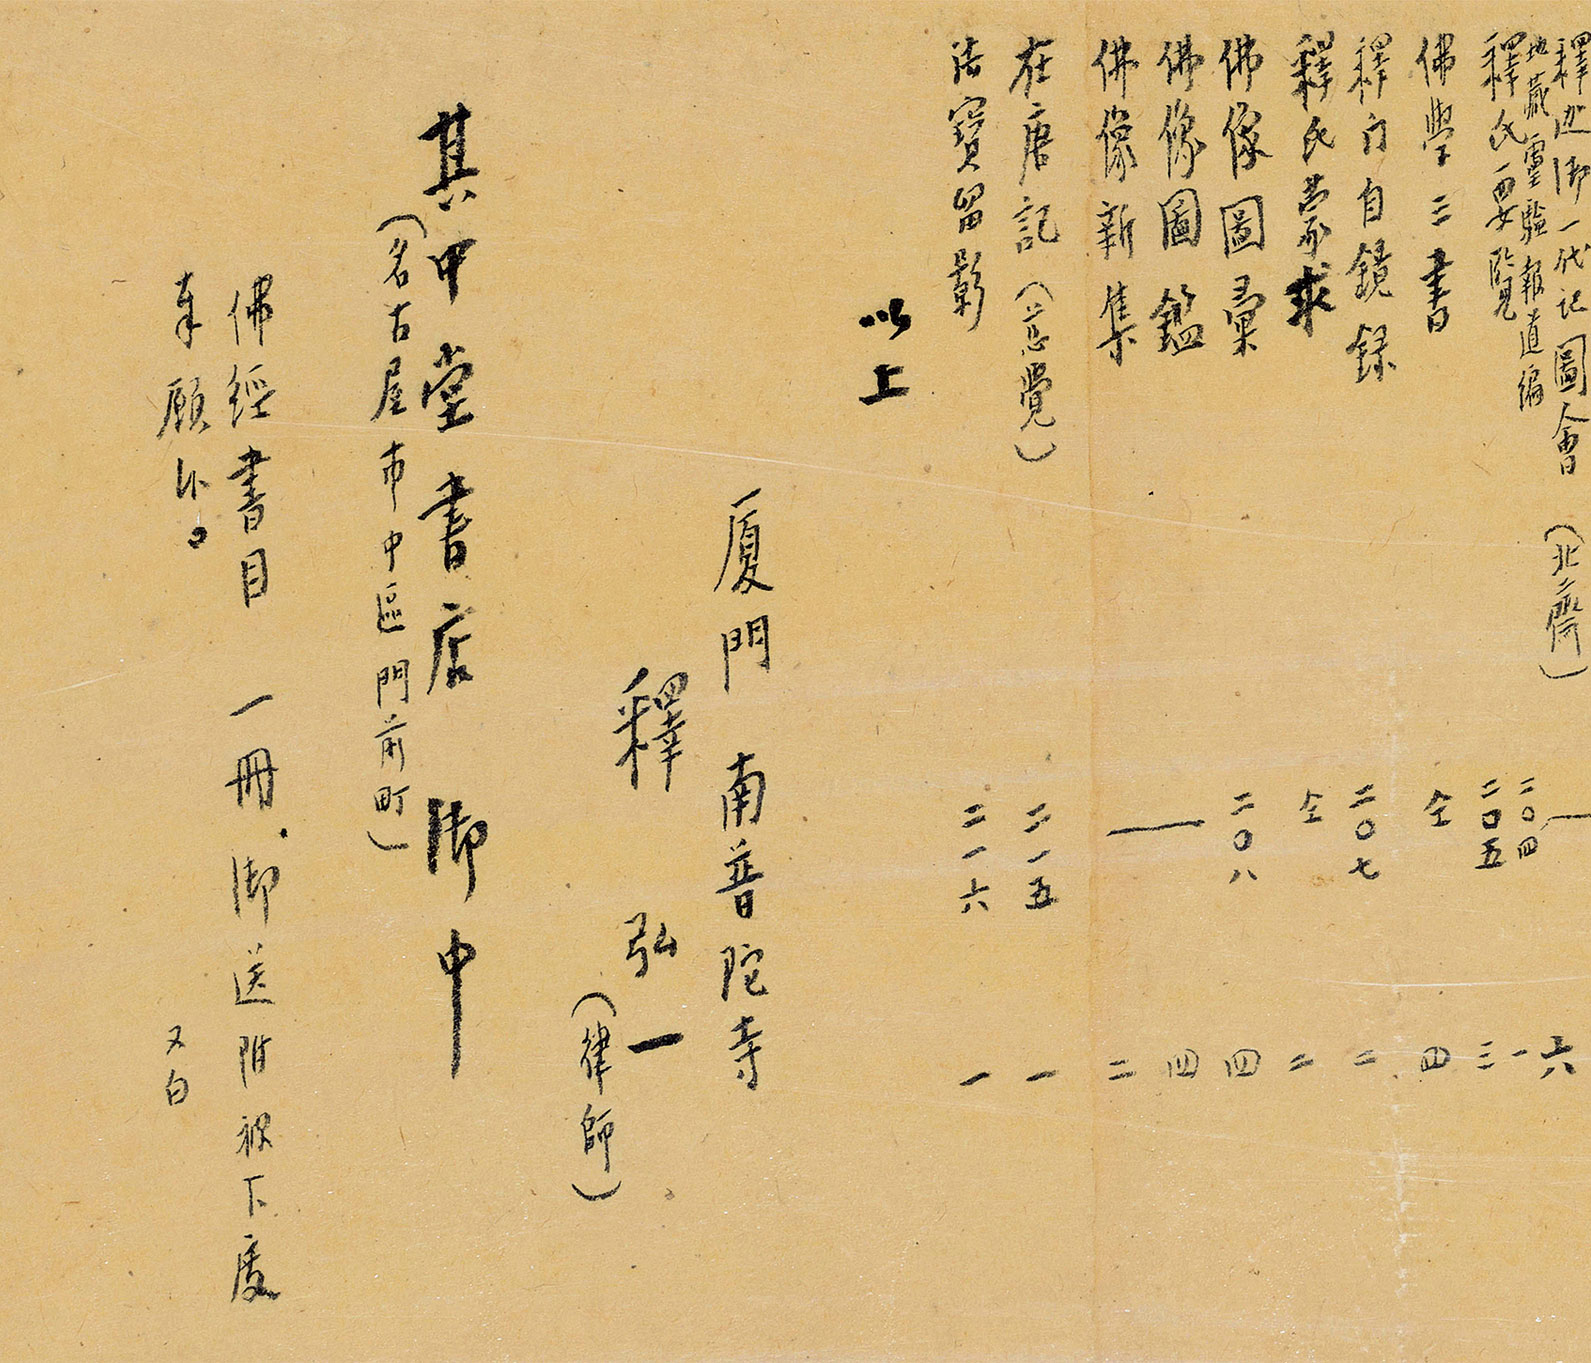 釋迦御一代記圖會 (北齋) — 六
地藏靈驗報道編 二〇四 一
釋氏要覽 二〇五 三
佛學三書 仝 四
釋门自鏡録 二〇七 二
釋氏蒙求 仝 二
佛像圖彙 二〇八 四
佛像圖鑑 — 四
佛像新集 — 二
在唐記 (慈覺) 二一五 一
法寶留影 二一六 一
以上
厦門 南普陀寺
釋 弘一
(律師)
其中堂書店 御中
(名古屋市中區門前町)
佛經書目 一冊、御送附被下度
奉願候。
又白